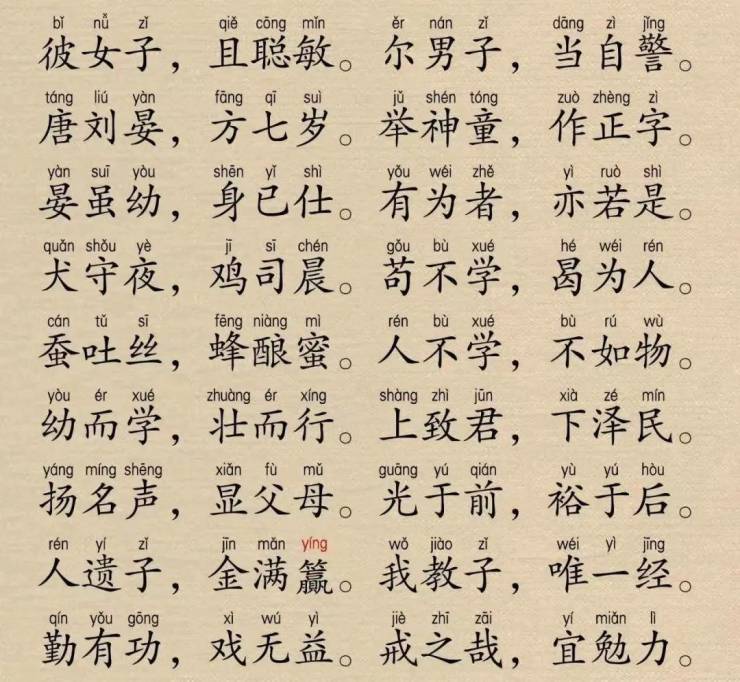 bǐ nǚ zǐ qiě cōng mǐn ěr nán zǐ dāng zì jǐng
彼女子，且聪敏。尔男子，当自警。
táng liú yàn fāng qī suì jǔ shén tóng zuò zhèng zì
唐刘晏，方七岁。举神童，作正字。
yàn suī yòu shēn yǐ shì yǒu wéi zhě yì ruò shì
晏虽幼，身已仕。有为者，亦若是。
quǎn shǒu yè jī sī chén gǒu bù xué hé wéi rén
犬守夜，鸡司晨。苟不学，曷为人。
cán tǔ sī fēng niàng mì rén bù xué bù rú wù
蚕吐丝，蜂酿蜜。人不学，不如物。
yòu ér xué zhuàng ér xíng shàng zhì jūn xià zé mín
幼而学，壮而行。上致君，下泽民。
yáng míng shēng xiǎn fù mǔ guāng yú qián yù yú hòu
扬名声，显父母。光于前，裕于后。
rén yí zǐ jīn mǎn yíng wǒ jiào zǐ wéi yì jīng
人遗子，金满籯。我教子，唯一经。
qín yǒu gōng xì wú yì jiè zhī zāi yí miǎn lì
勤有功，戏无益。戒之哉，宜勉力。